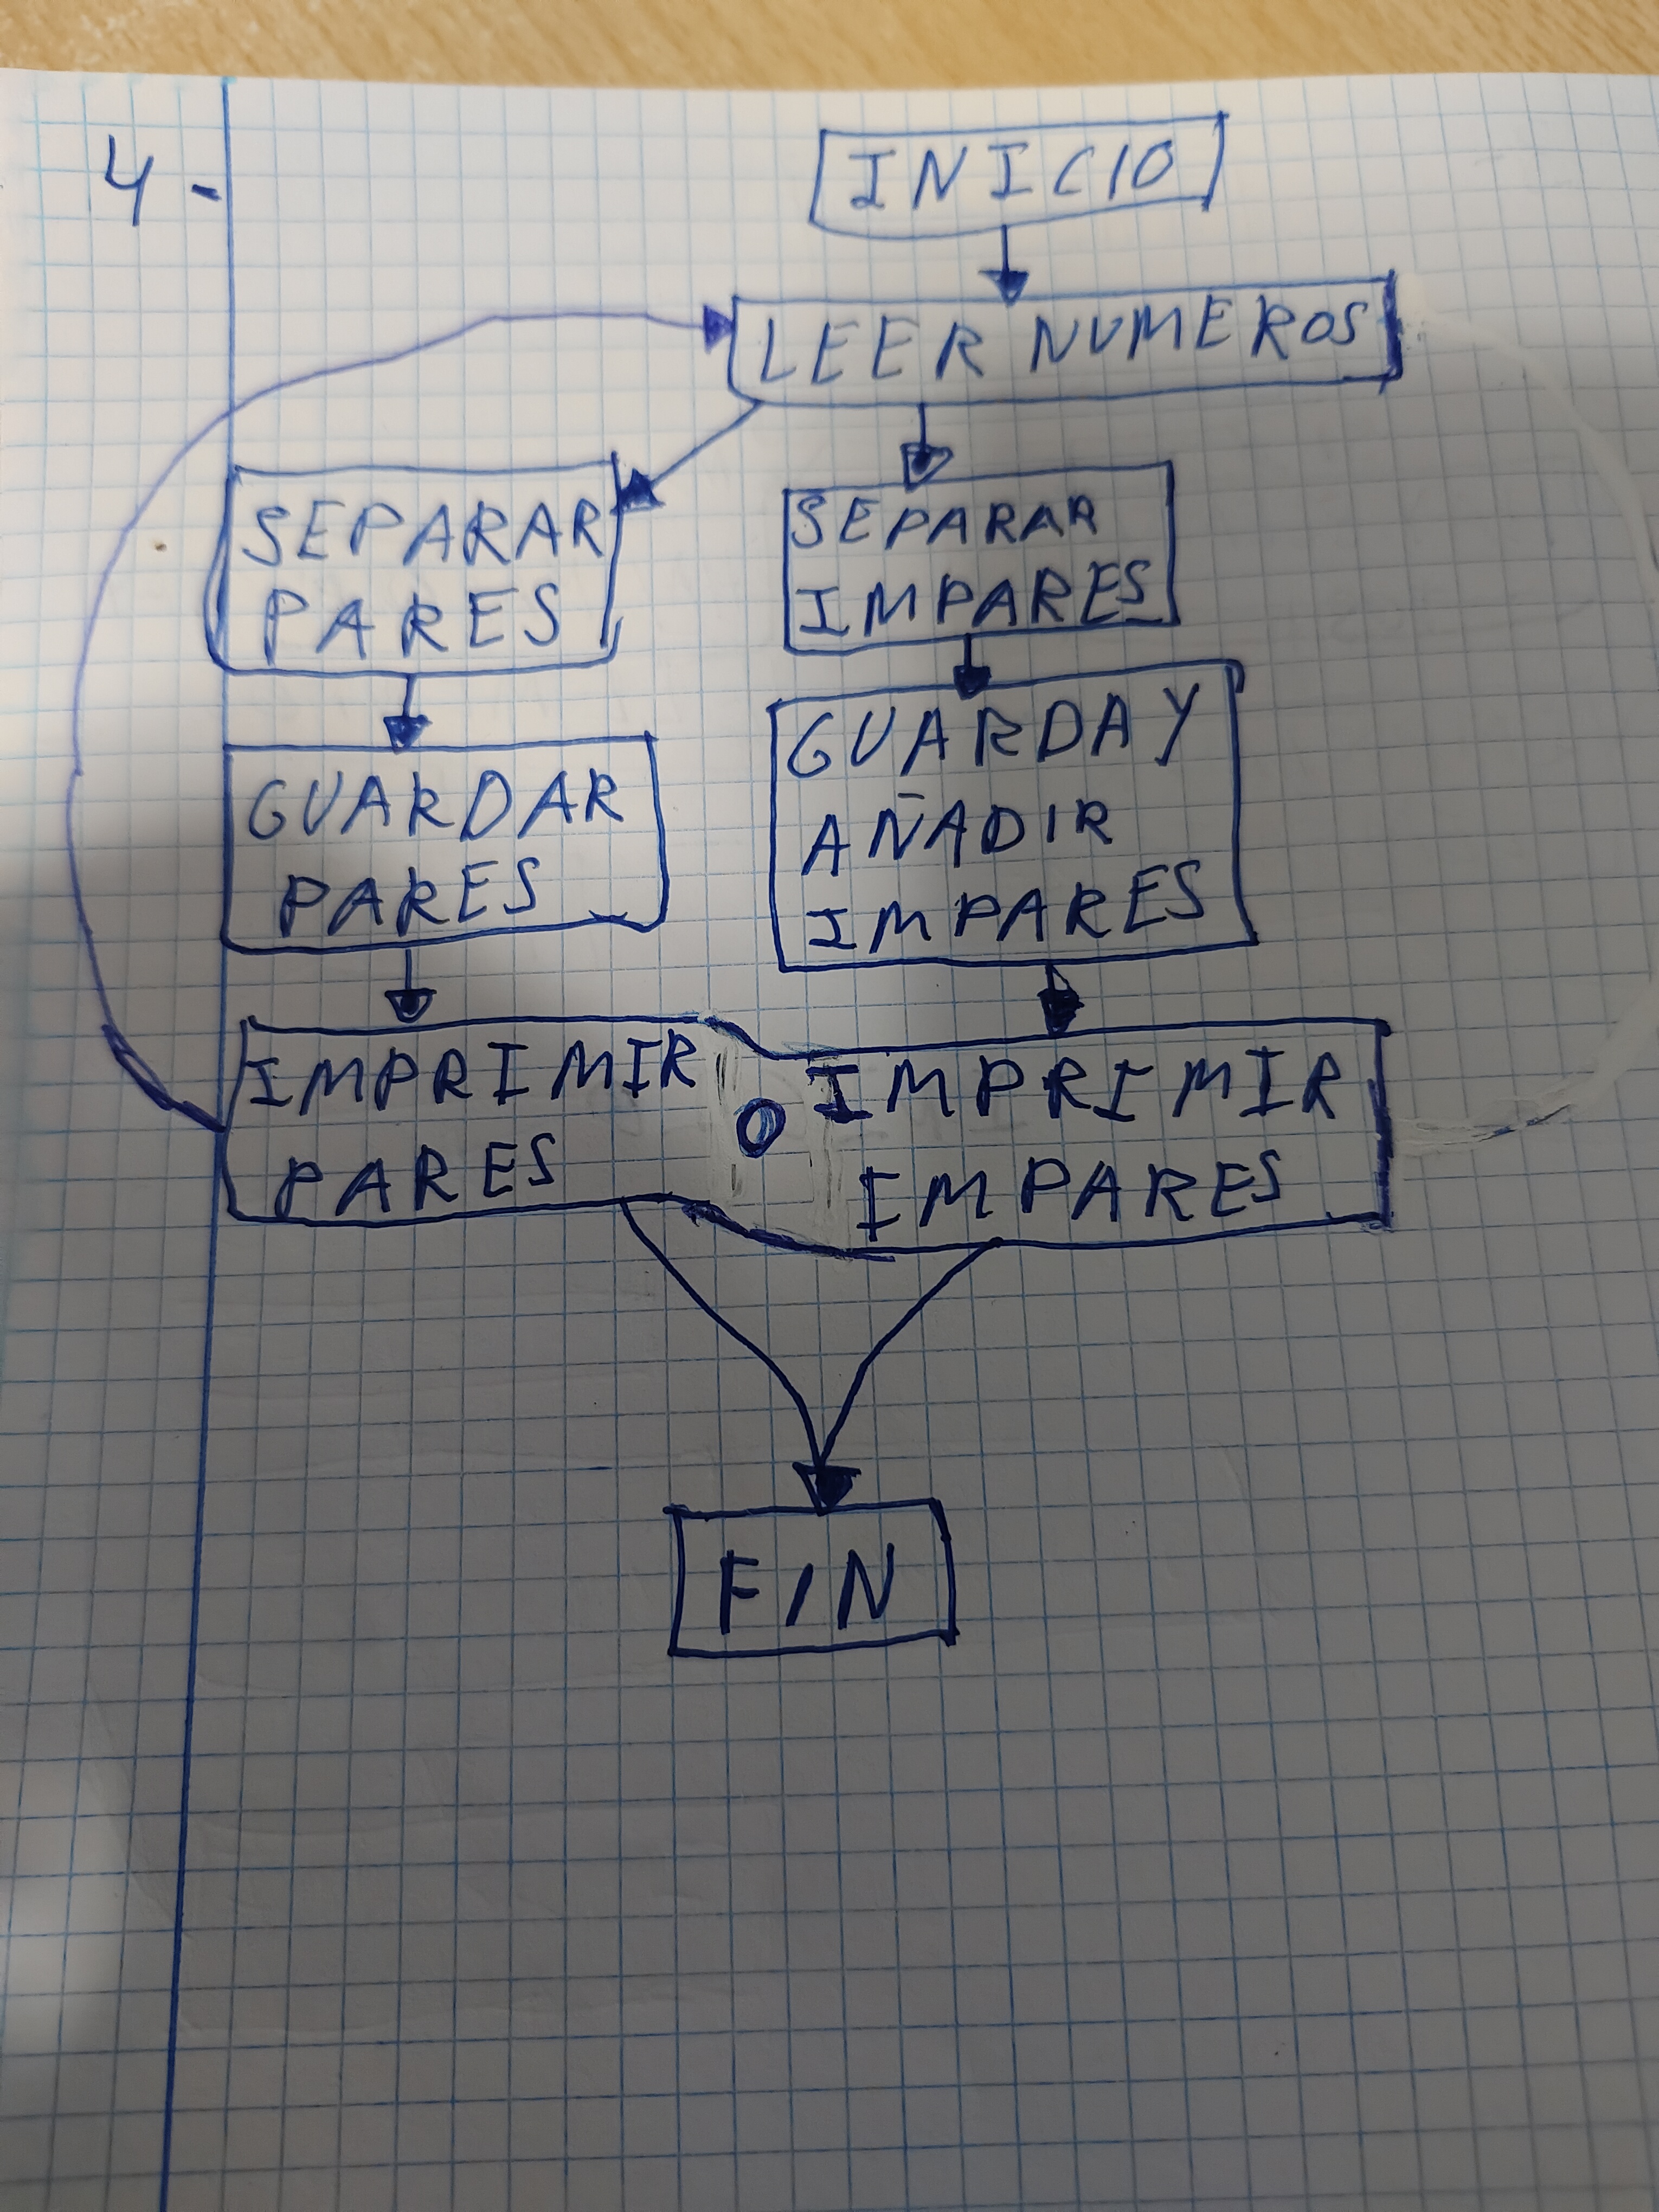 4-
INICIO
LEER NUMEROS
SEPARAR
PARES
SEPARAR
IMPARES
GUARDAR
PARES
GUARDA Y
AÑADIR
IMPARES
IMPRIMIR O IMPRIMIR
PARES IMPARES
FIN